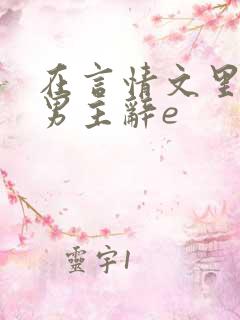 在言情文里
男主辭e
靈宇1